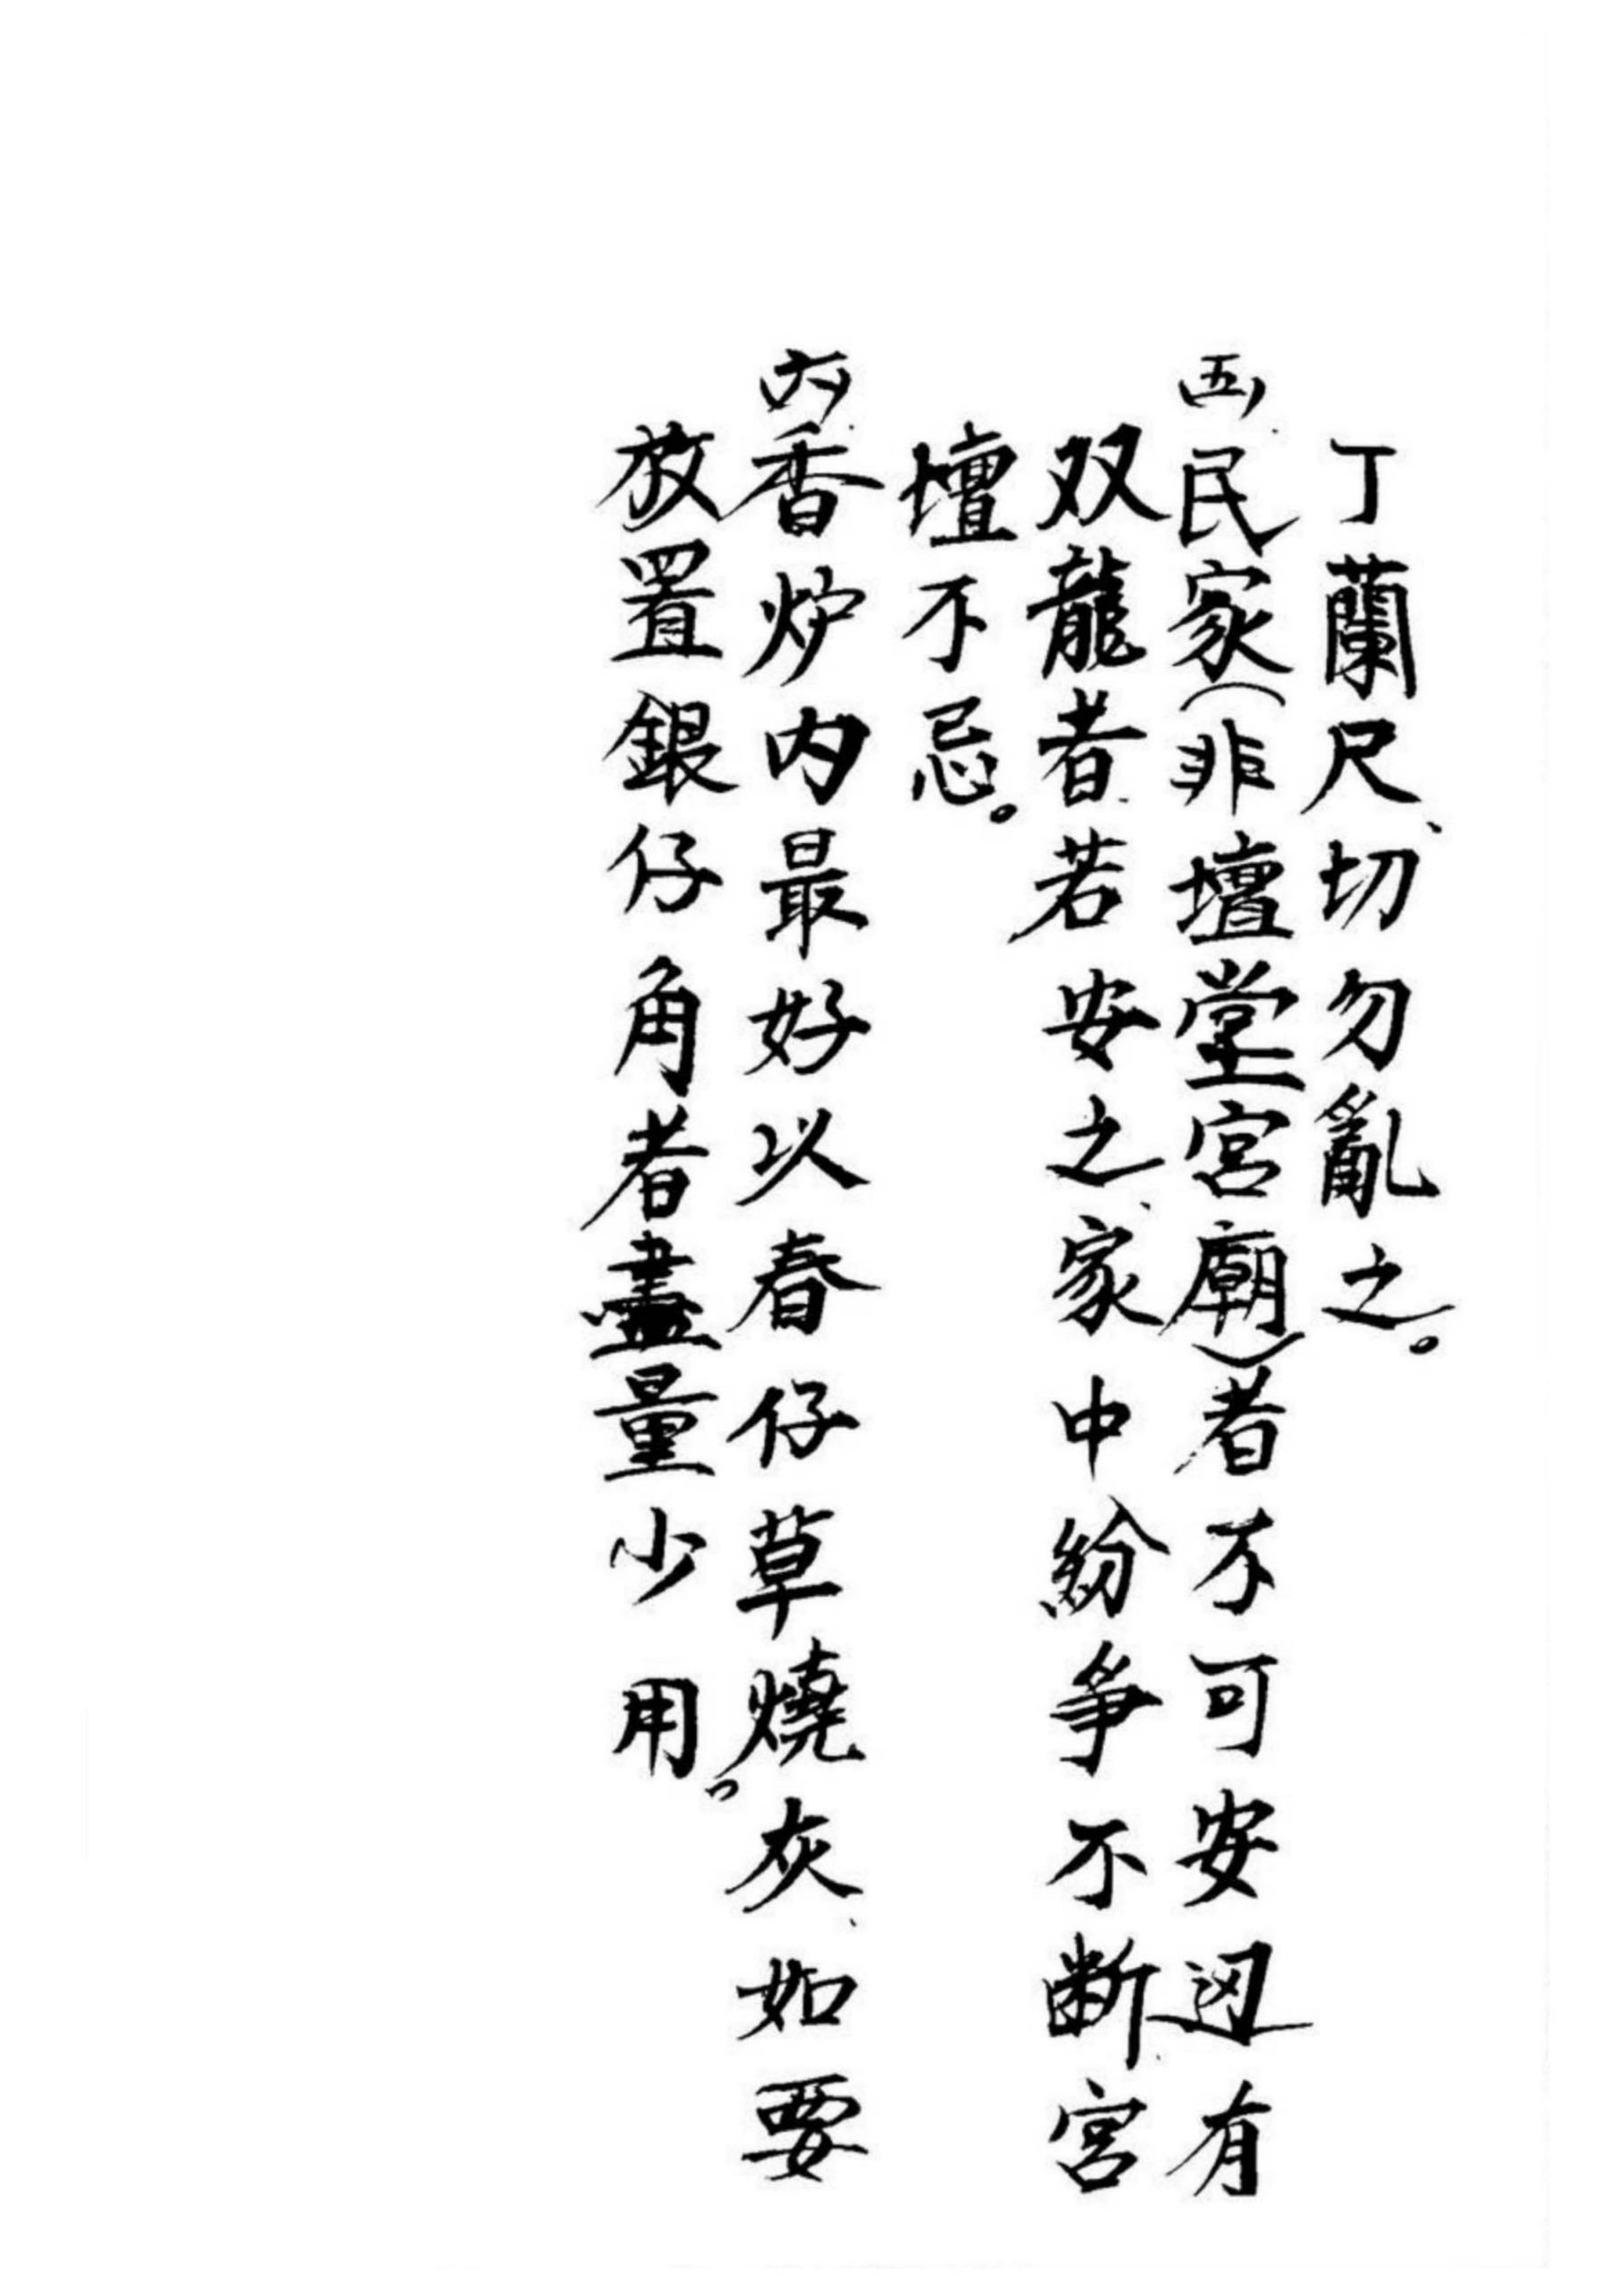 丁蘭尺、切勿亂之。
五)民家(非壇堂宮廟)者不可安有
双龍者、若安之、家中紛爭不断、宮
壇不忌。
六)香炉内最好以春仔草燒灰、如要
放置銀仔角者盡量少用。